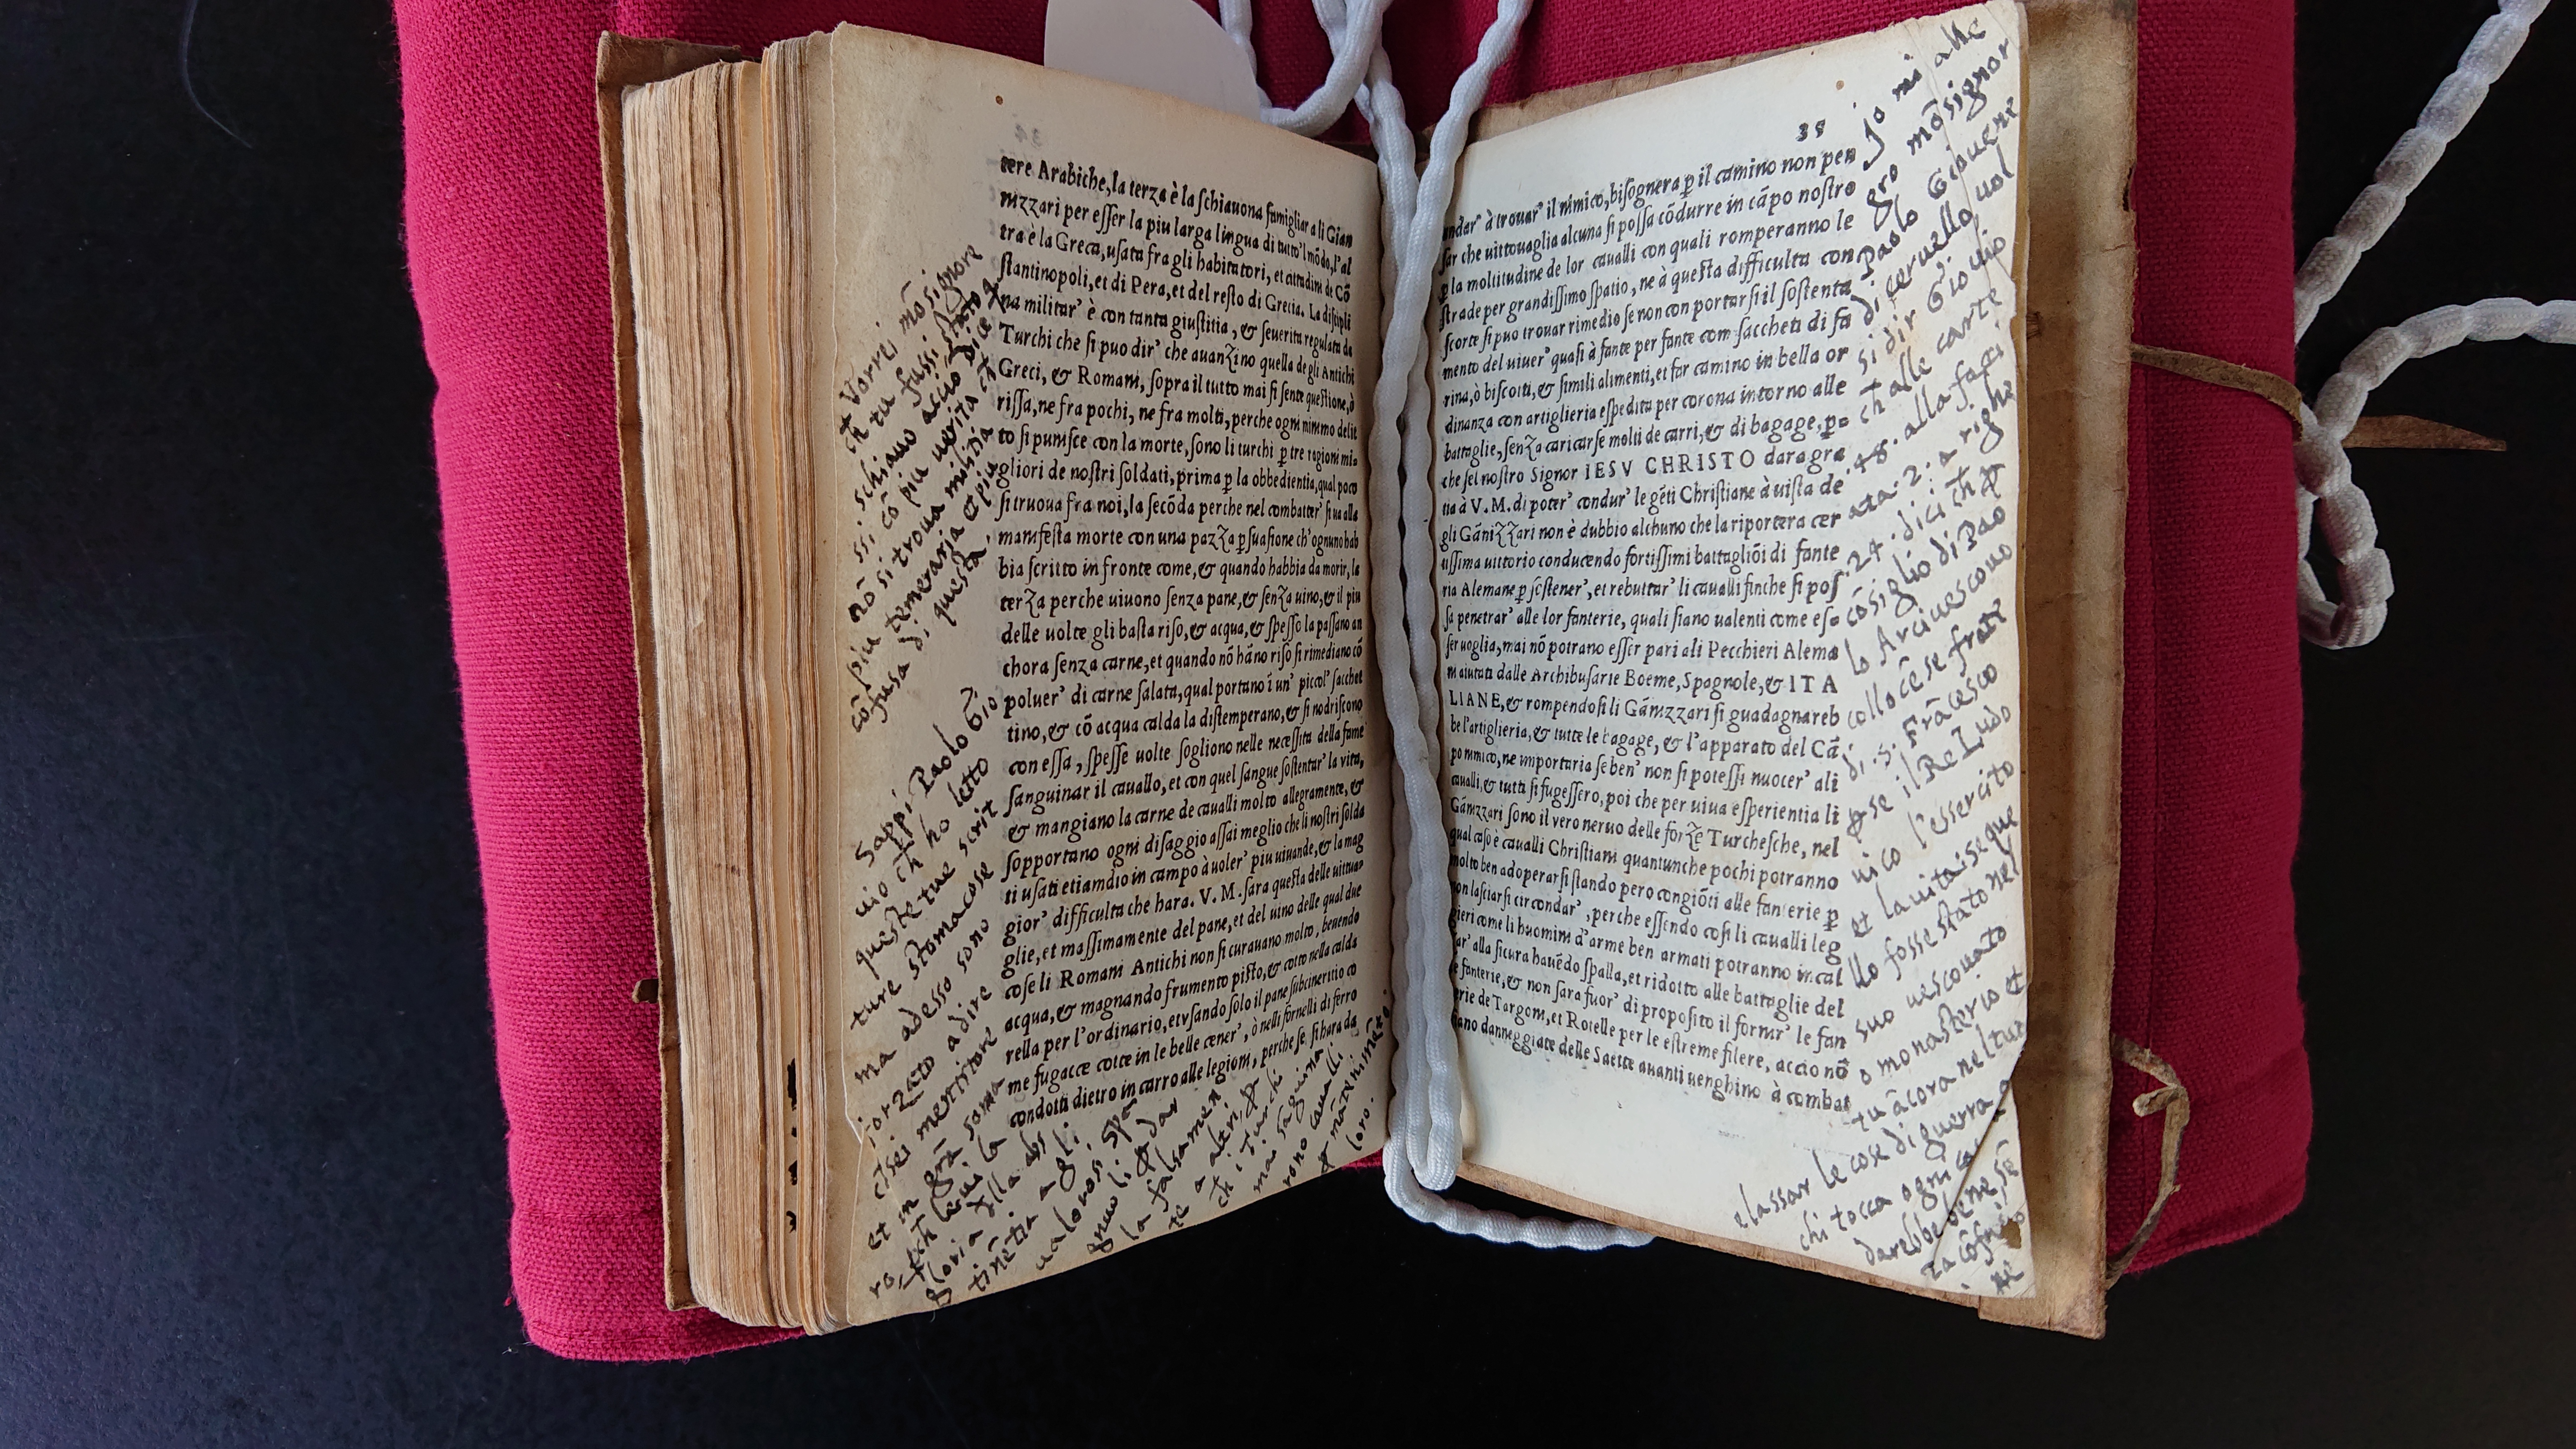 tere Arabiche, la terza è la ſchiauona famigliar a li Gian
nizzari per eſſer la piu larga lingua di tutto'l mōdo, l'al
tra è la Greca, uſata fra gli habitatori, et cittadini de Cō
ſtantinopoli, et di Pera, et del reſto di Grecia. La diſcipli
na militar' è con tanta giuſtitia, & ſeuerita regulata da
Turchi che ſi puo dir' che auanzino quella de gli Antichi
Greci, & Romani, ſopra il tutto mai ſi ſente queſtione, ò
riſſa, ne fra pochi, ne fra molti, perche ogni minimo delit
to ſi puniſce con la morte, ſono li turchi ꝑ tre ragioni mi=
gliori de noſtri ſoldati, prima ꝑ la obbedientia, qual poco
ſi truoua fra noi, la ſecōda perche nel combatter' ſi ua alla
manifeſta morte con una pazza ꝑſuaſione ch'ognuno hab
bia ſcritto in fronte come, & quando habbia da morir, la
terza perche uiuono ſenza pane, & ſenza uino, & il piu
delle uolte gli baſta riſo, & acqua, & ſpeſſo la paſſano an
chora ſenza carne, et quando nō hāno riſo ſi rimediano cō
poluer' di carne ſalata, qual portano ī un' piccol' ſacchet
tino, & cō acqua calda la diſtemperano, & ſi nodriſcono
con eſſa, ſpeſſe uolte ſogliono nelle neceſſita della fame
ſanguinar il cauallo, et con quel ſangue ſoſtentar' la uita,
& mangiano la carne de caualli molto allegramente, &
ſopportano ogni diſaggio aſſai meglio che li noſtri ſolda
ti uſati etiamdio in campo à uoler' piu uiuande, & la mag
gior' difficulta che hara. V. M. ſara queſta delle uittua=
glie, et maſſimamente del pane, et del uino delle qual due
coſe li Romani Antichi non ſi curauano molto, beuendo
acqua, & magnando frumento piſto, & cotto nella calda
rella per l'ordinario, et vſando ſolo il pane ſubcineritio co
me fugacce cotte in le belle cener', ò nelli fornelli di ferro
condotti dietro in carro alle legioni, perche ſe ſi hara da
Vorrei mōsignore
ch tu fussi stato
schiauo acciò dice
ssi cō piu uerita ch
nō si troua militia
piu temeraria et piu
cōfusa di questa.
Sappi Paolo Gio
uio ch ho letto
queste tue scrit
ture stomacose
ma adesso sono
forzato a dire
ch sei mentitore
et in grā soma
ch leui la
gloria
tinētia a gli
ualorosi
la falsamen
te a altri,
ch i Turchi
mai sāguina
rono caualli
loro.
38
andar' à trouar' il nimico, biſognera ꝑ il camino non pen
ſar che uittouaglia alcuna ſi poſſa cōdurre in cāpo noſtro
ꝑ la moltitudine de lor caualli con quali romperanno le
ſtrade per grandiſſimo ſpatio, ne à queſta difficulta con
ſcorte ſi puo trouar rimedio ſe non con portarſi il ſoſtenta
mento del uiuer' quaſi à fante per fante com ſaccheti di fa
rina, ò biſcotti, & ſimili alimenti, et far camino in bella or
dinanza con artiglieria eſpedita per corona intorno alle
battaglie, ſenza caricarſe molti de carri, & di bagage, ꝑ=
che ſel noſtro Signor IESV CHRISTO dara gra
tia à V. M. di poter' condur' le gēti Chriſtiane à uiſta de
gli Gānizzari non è dubbio alchuno che la riportera cer
tiſſima uittorio conducendo fortiſſimi battagliōi di fante
ria Alemane ꝑ ſoſtener', et rebuttar' li caualli finche ſi poſ
ſa penetrar' alle lor fanterie, quali ſiano ualenti come eſ=
ſer uoglia, mai nō potrano eſſer pari ali Pecchieri Alema
ni aiutati dalle Archibuſarie Boeme, Spagnole, & ITA
LIANE, & rompendoſi li Gānizzari ſi guadagnareb
be l'artiglieria, & tutte le bagage, & l'apparato del Cā
po nimico, ne importaria ſe ben' non ſi poteſſi nuocer' ali
caualli, & tutti ſi fugeſſero, poi che per uiua eſperientia li
Gānizzari ſono il vero neruo delle forze Turcheſche, nel
qual caſo è caualli Chriſtiani quantunche pochi potranno
molto ben adoperarſi ſtando pero congiōti alle fanterie ꝑ
non laſciarſi circondar', perche eſſendo coſi li caualli leg
gieri come li huomini d'arme ben armati potranno incal
zar' alla ſicura hauēdo ſpalla, et ridotto alle battaglie del
le fanterie, & non ſara fuor' di propoſito il fornir' le fan
terie de Targoni, et Rotelle per le eſtreme filere, accio nō
ſiano danneggiate delle Saette auanti uenghino à combat
Jo mi alle
gro mōsignor
Paolo Giouene
di ceruello, uol
si dir Giouio
ch alle carte
.48. alla facci
ata .2. a righe
.24. dici ch ꝑ
cōsiglio di Pao
lo Arciuescouo
collocēse frate
di .s. Frācesco
ꝑse il Re Ludo
uico l'essercito
et la uita, se que
llo fosse stato nel
suo uescouato
o monasterio et
tu ācora nel tuo
e lassar le cose di guerra a
chi tocca ogni co